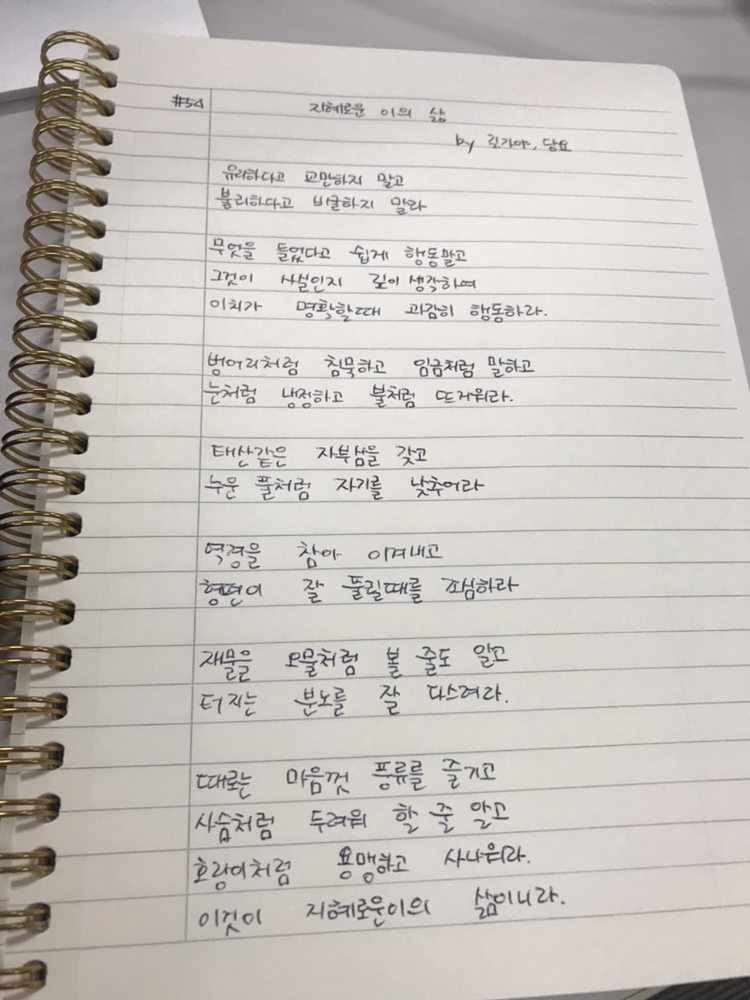 #54
지혜로운 이의 삶
by 림가야, 당요
유리하다고 교만하지 말고
불리하다고 비굴하지 말라
무엇을 들었다고 쉽게 행동말고
그것이 사실인지 깊이 생각하여
이치가 명확할때 과감히 행동하라.
벙어리처럼 침묵하고 임금처럼 말하고
눈처럼 냉정하고 불처럼 뜨거워라.
태산같은 자부심을 갖고
누운 풀처럼 자기를 낮추어라
역경을 참아 이겨내고
형편이 잘 풀릴때를 조심하라
재물을 오물처럼 볼 줄도 알고
터지는 분노를 잘 다스려라.
때로는 마음껏 풍류를 즐기고
사슴처럼 두려워 할 줄 알고
호랑이처럼 용맹하고 사나워라.
이것이 지혜로운이의 삶이니라.